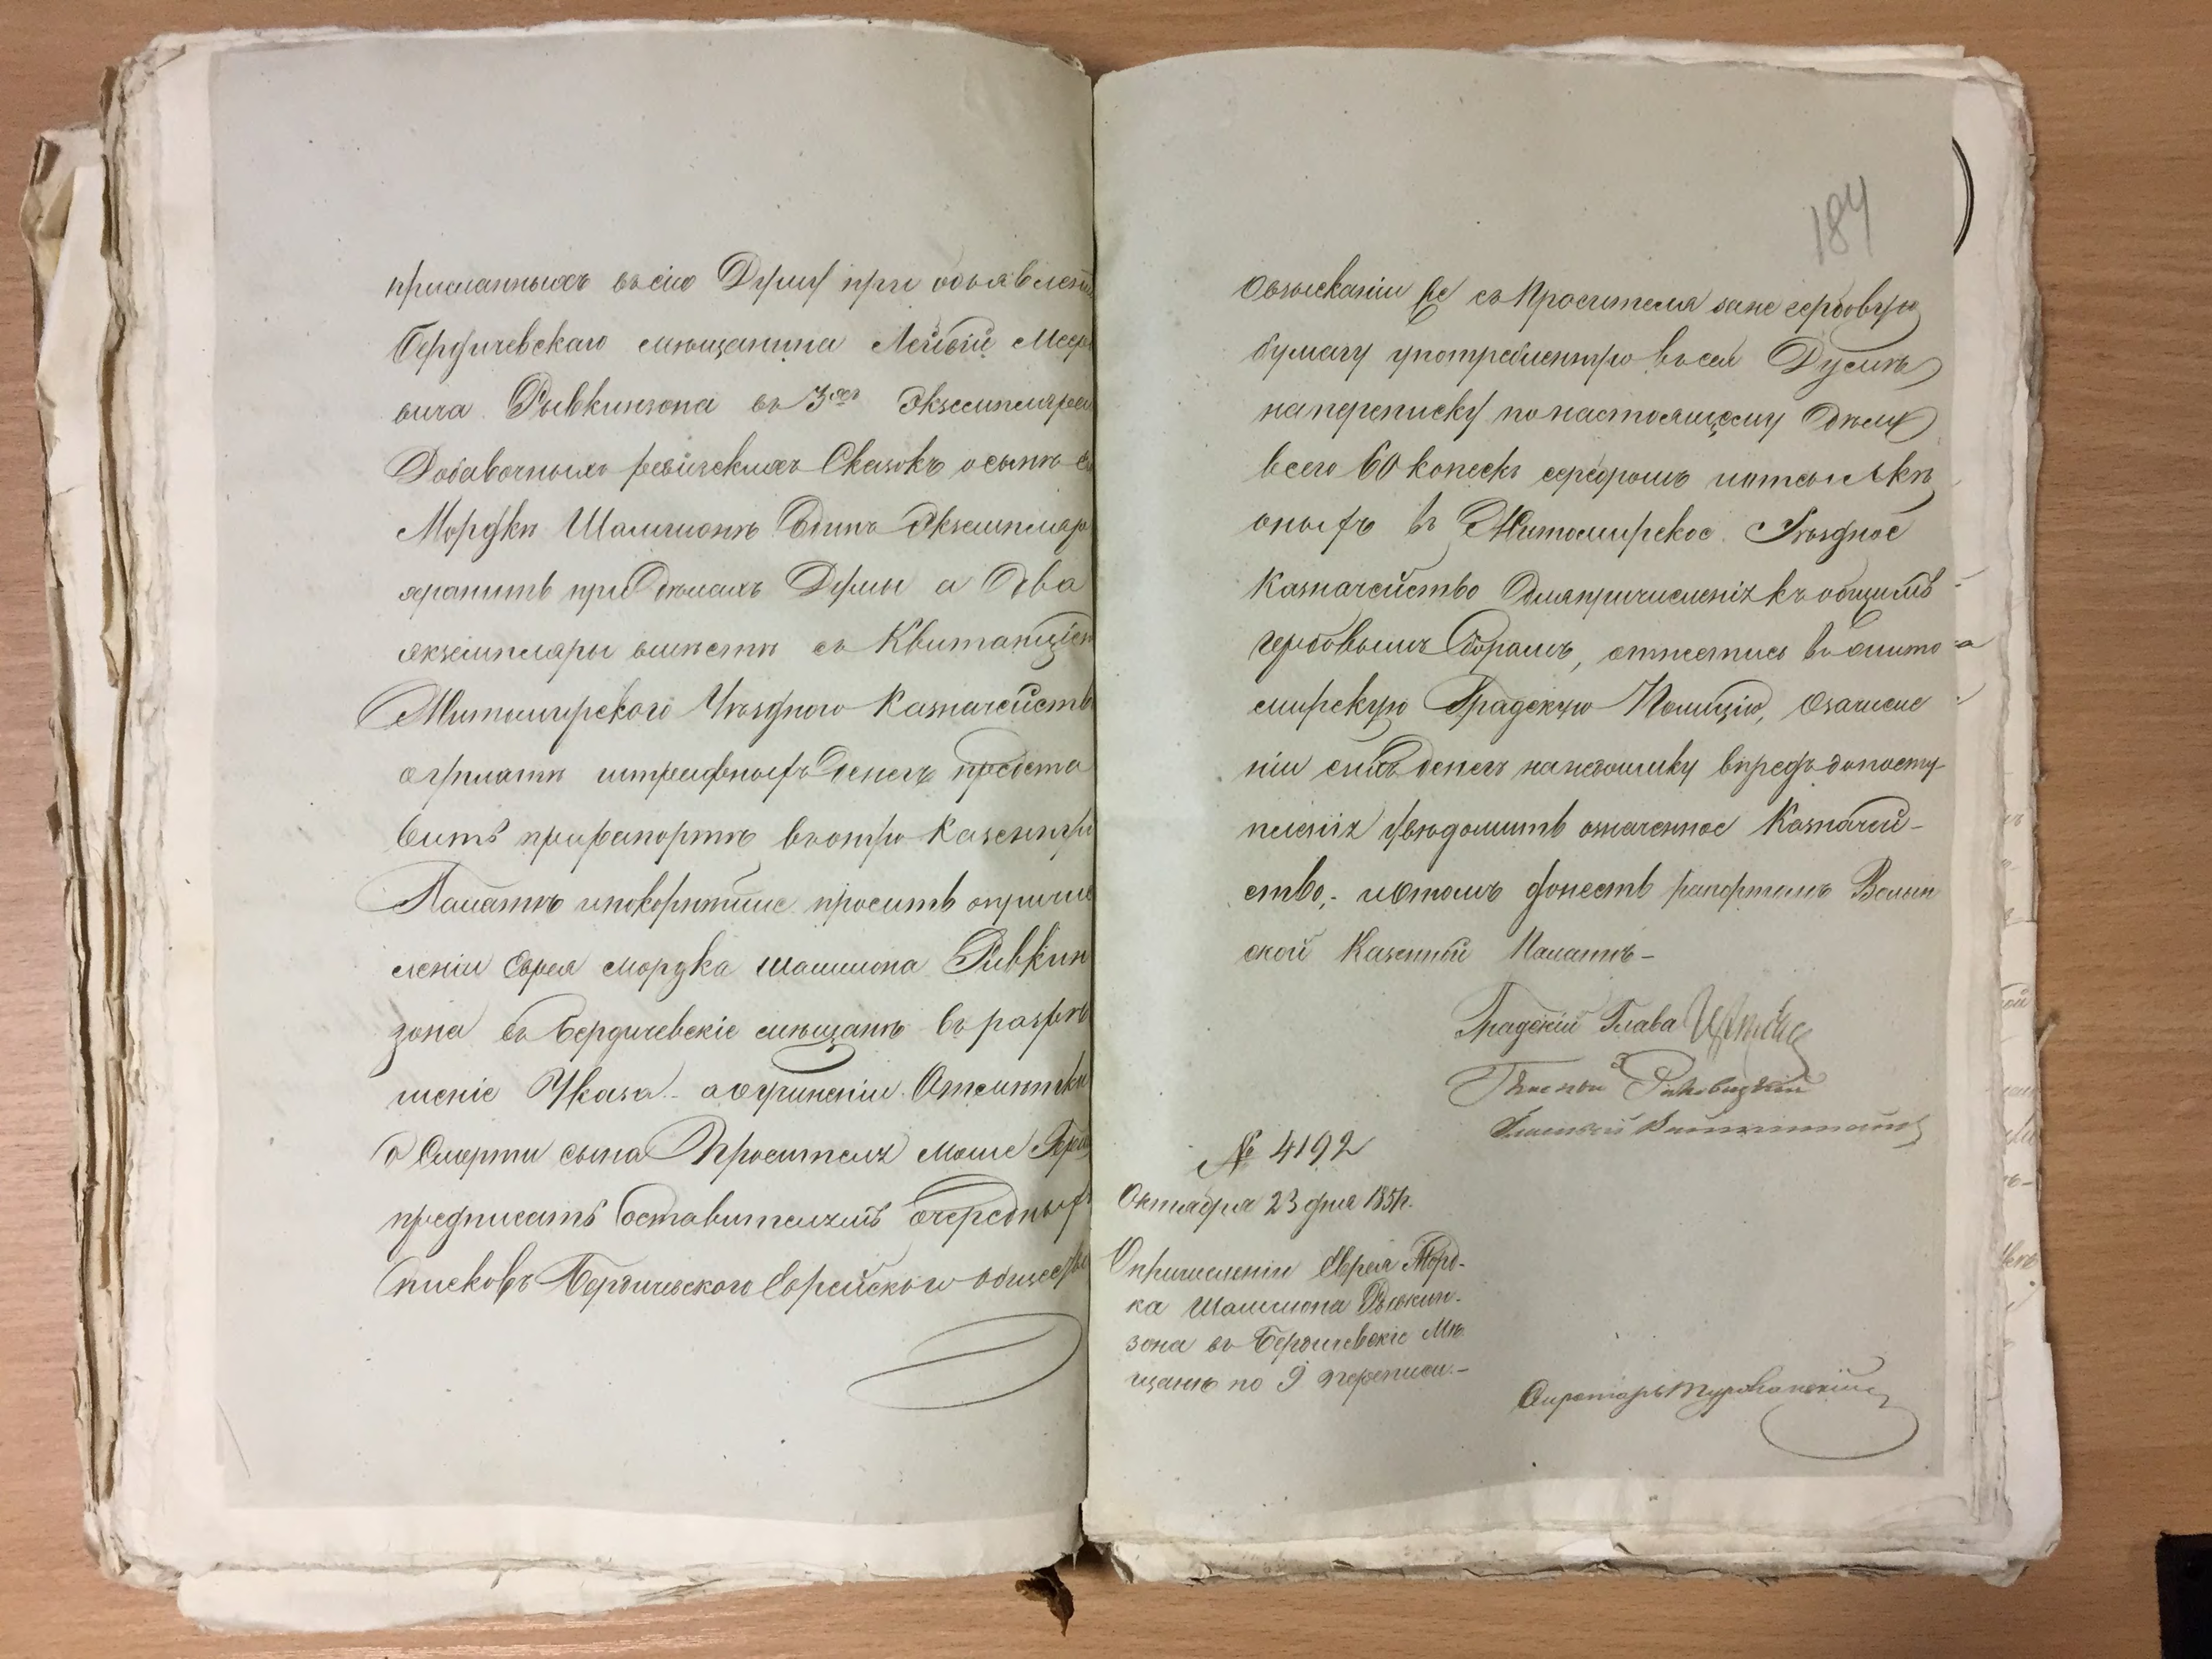 присланныхъ въ сію Думу при объявлені
Бердичевскаго мѣщанина Лейбы Меер
вича Рывкинзона въ 3хъ Экземпляра
Добавочныхъ ревизскихъ Сказокъ о сынѣ е
Мордкѣ Шаммонѣ Одинъ Экземпляр
хранить при Дѣлахъ Думы а Два
экземпляры вмѣстѣ съ Квитанціею
Житомирскаго Уѣзднаго Казначейств
о уплатѣ штрафныхъ Денегъ предста
вить при рапортѣ въ оную Казенную
Палату и покорнѣйше просить о причи
сленіи Еврея Мордка Шаммона Ривкин
зона въ Бердичевскіе мѣщане въ разрѣ
шеніе Указа - а о учиненіи Отмѣтки
о Смерти сына Просителя Моше
предписать составителямъ очередныхъ
писковъ Бердичевскаго Еврейскаго общества
184
О взысканіи съ Просителя за не гербовую
бумагу употребленную въ сей Думѣ
на переписку по настоящему Дѣлу
всего 60 копѣекъ серебромъ и отсылкѣ
оныхъ въ Житомирское Уѣздное
Казначейство Для причисленія къ общимъ
гербовымъ Сборамъ, отнестись въ Жито
мирскую Градскую Полицію, О зачисле
ніи сихъ денегъ на недоимку впредь до посту-
пленія увѣдомить означенное Казначей-
ство, - и о томъ донесть рапортомъ Волын
ской Казенной Палатѣ -
Градскій Глава
Гласный
Гласный
№ 4192
Октября 23 дня 1851г.
О причисленіи Еврея Морд-
ка Шаммона Рывкин-
зона въ Бердичевскіе Мѣ
щане по 9 переписи. -
Секретарь